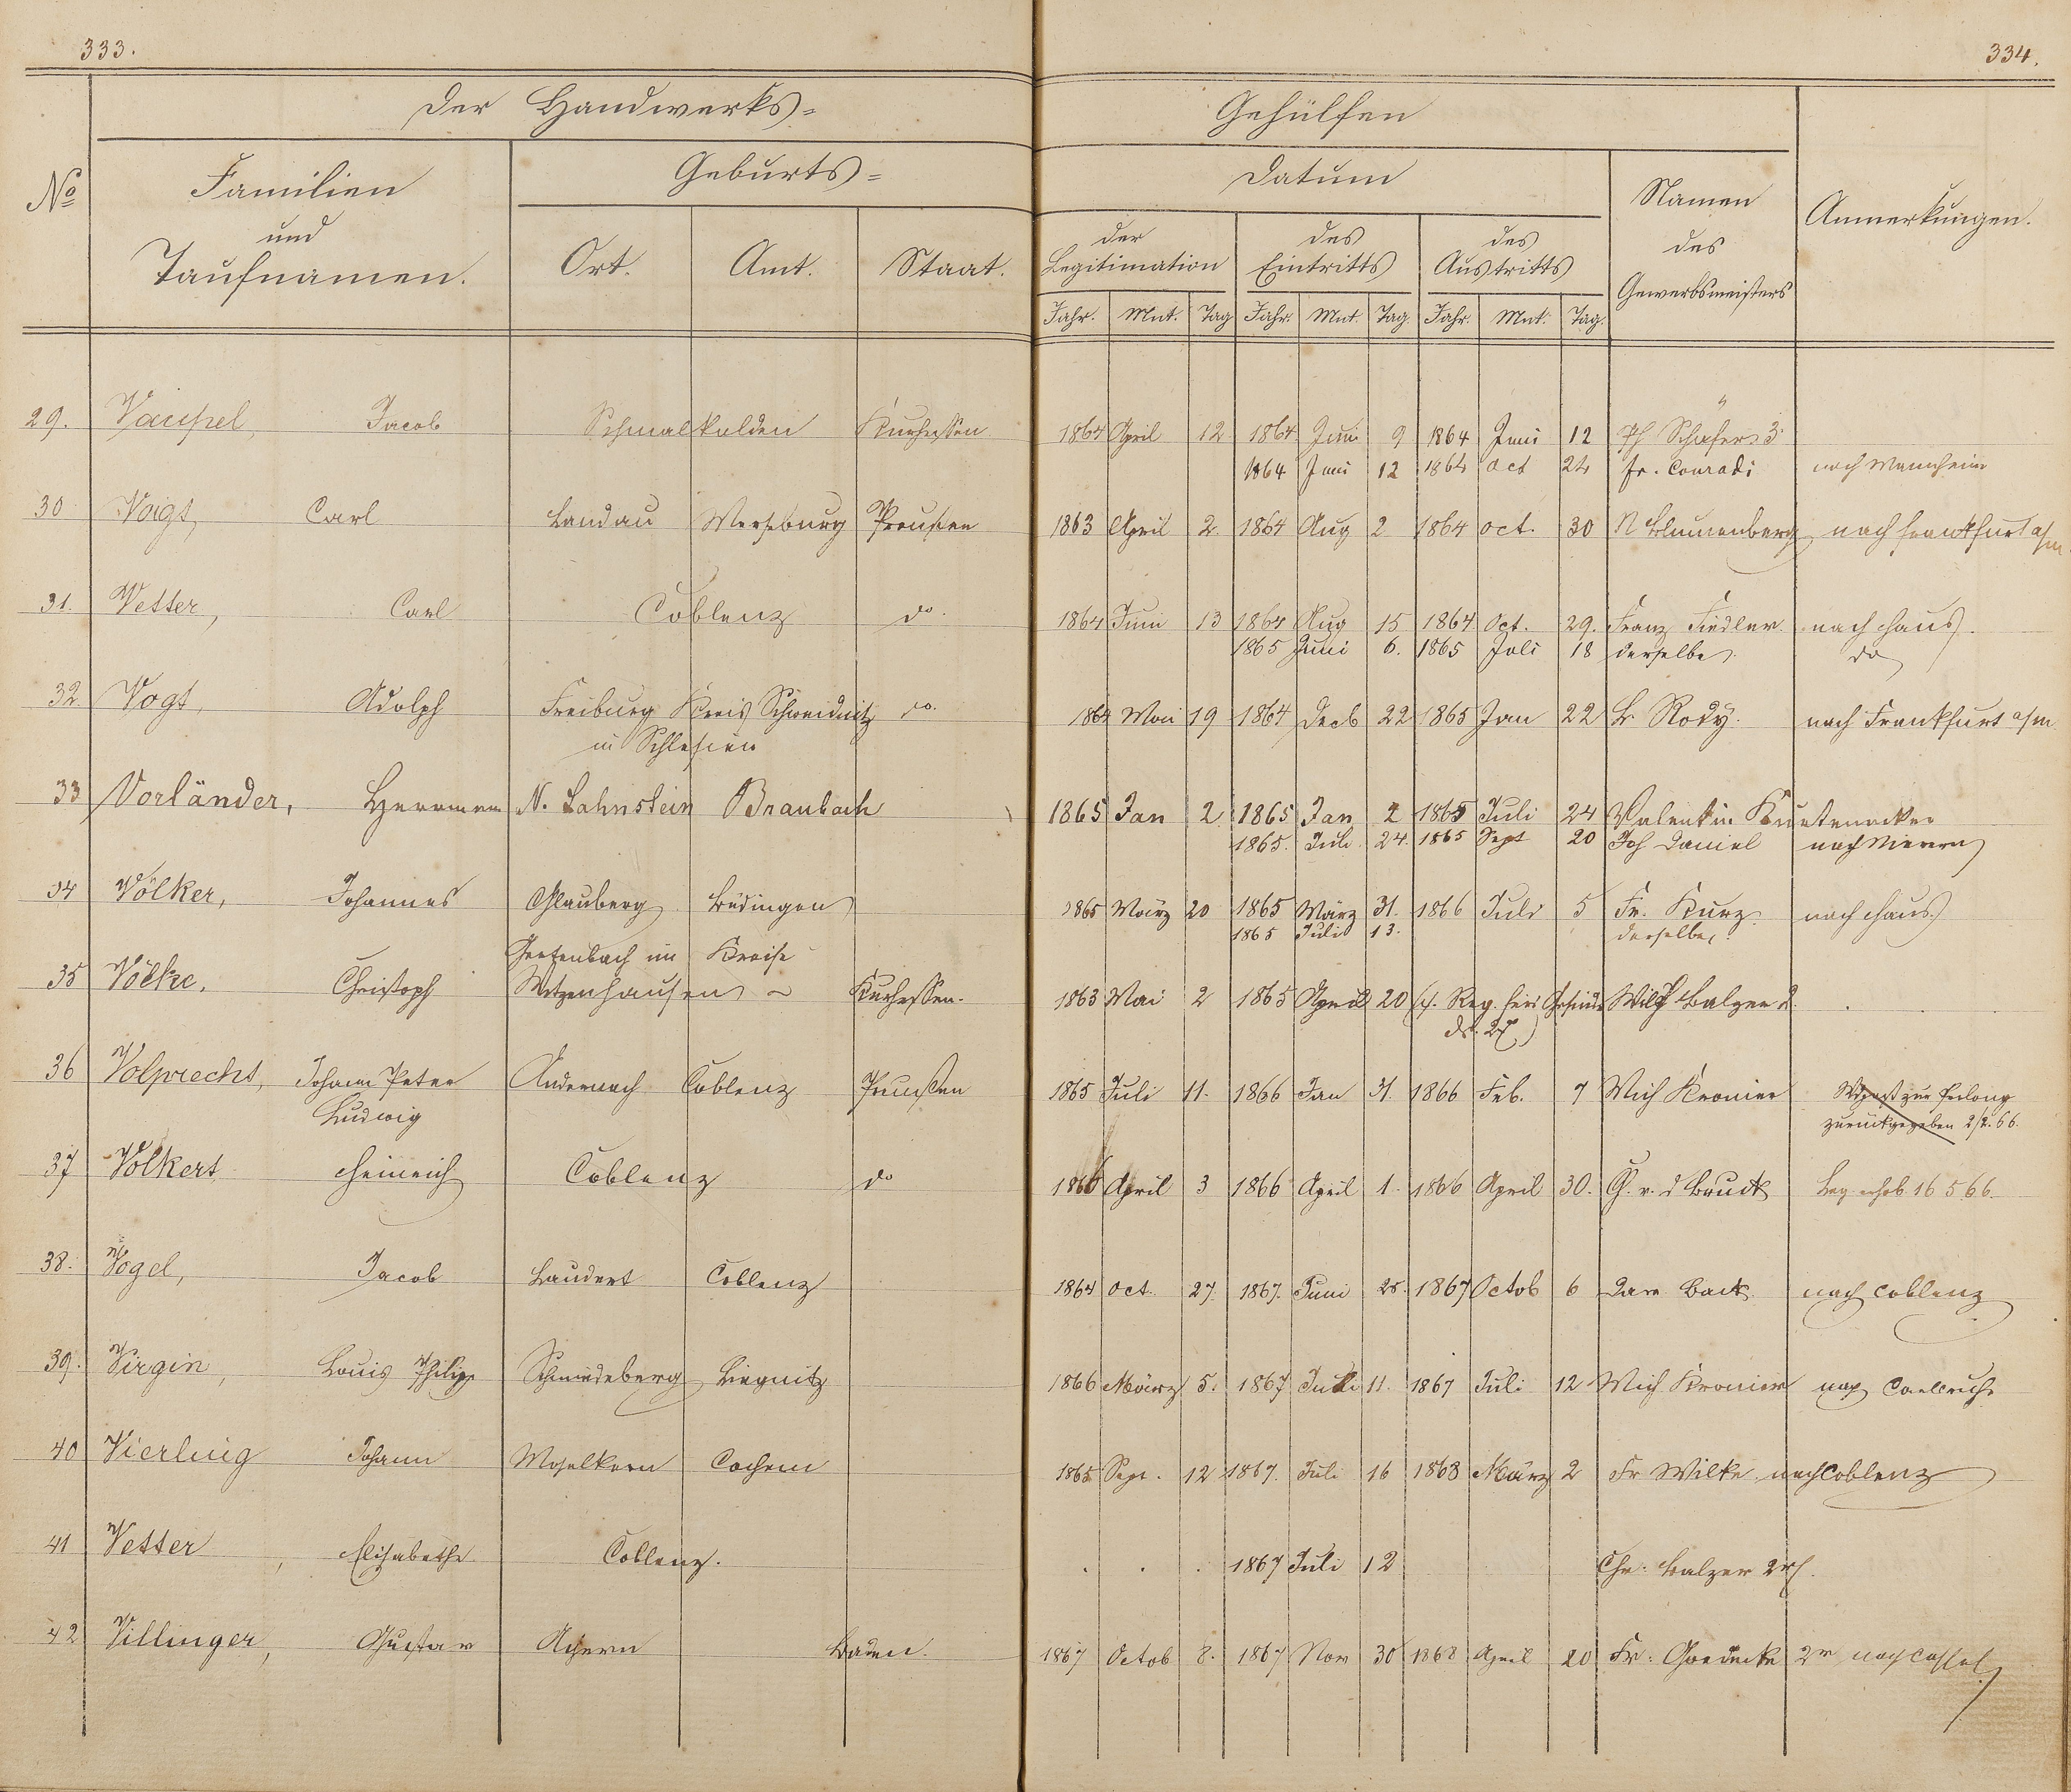 333.
334.
Der Handwerks=
Gehülfen
No
Familien
und
Taufnamen.
Geburts=
Ort.
Amt.
Staat.
Datum
der
Legitimation
des
Eintritts
des
Austritts
Jahr. Mnt. Tag Jahr. Mnt. Tag. Jahr. Mnt. Tag.
Namen
des
Gewerbsmeisters
Anmerkungen.
29. Vaupel, Jacob Schmalkalden Kurhessen 1864 April 12 1864 Juni 9 1864 Juni 12 Ph Schäfer 3r
1864 Juni 12 1864 Oct 24 Fr. Conradi nach Mannheim
30 Voigt, Carl Landau Merseburg Preußen 1863 April 2. 1864 Aug 2 1864 Oct. 30 N Blumenberg nach Frankfurt a/m
31. Vetter, Carl Coblenz do. 1864 Juni 13 1864 Aug 15 1864 Oct. 29. Franz Fiedler nach Haus.
1865 Juni 6. 1865 Juli 18 derselbe do
32. Vogt, Adolph Freiburg Kreis Schweidnitz do. 1864 Mai 19 1864 Decb 22 1865 Jan 22 L. Rody. nach Frankfurt a/m
in Schlesien
33 Vorländer, Hermann N. Lahnstein Braubach 1865 Jan 2 1865 Jan 2 1865 Juli 24 Valentin
1865. Juli 24. 1865 Sept 20 Joh Daniel nach
34 Völker, Johannes Glauberg Büdingen 1865 März 20 1865 März 31. 1866 Juli 5 Fr. Kurz nach Haus.
1865 Juli 13. derselbe.
35 Völke, Christoph Gertenbach im Kreise
Witzenhausen Kurhessen. 1863 Mai 2 1865 April 20 (s. Reg. für Gesinde Wilh Balzer 2.
36 Volprecht, Johann Peter Andernach Coblenz Preußen 1865 Juli 11. 1866 Jan 31. 1866 Feb. 7 Mich Kronier
Ludwig zurückgegeben 2/2. 66.
37 Volkert Heinrich Coblenz do 1866 April 3 1866 April 1. 1866 April 30. G. v. d Bruck Leg erhob. 16 5 66.
38. Vogel, Jacob Laudert Coblenz 1864 Oct. 27. 1867. Juni 25. 1867 Octob 6 Back nach Coblenz
39. Virgin, Louis Philipp Schmiedeberg Liegnitz 1866 März 5. 1867 Juli 11. 1867 Juli 12 Mich Kronier nach Carlsruhe
40 Vierling Johann Moselkern Cochem 1865 Sept. 12 1867. Juli 16 1868 März 2 Fr Wilke nach Coblenz
41 Vetter, Elisabethe Coblenz. 1867 Juli 12 Chr. Balzer 2r
42 Villinger, Gustav Achern Baden. 1867 Octob 8. 1867 Nov 30 1868 April 20 Fr. Goedecke 2r nach Cassel